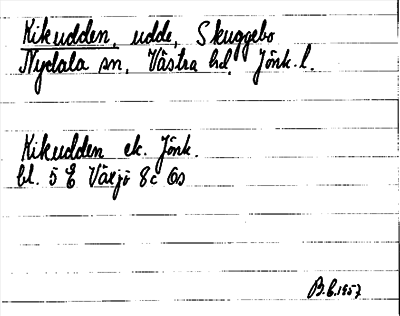 Kikudden, udde, Skuggebo
Nydala sn, Västra hd, Jönk. l.
Kikudden ek. Jönk.
bl. 5 E Växjö 8c Os
B.E. 1957